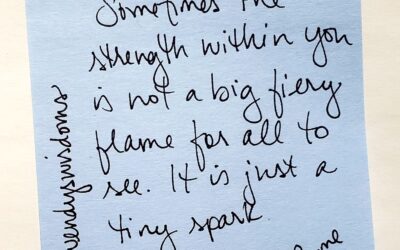 Sometimes the
strength within you
is not a big fiery
flame for all to
see. It is just a
tiny spark
wendyswisdoms